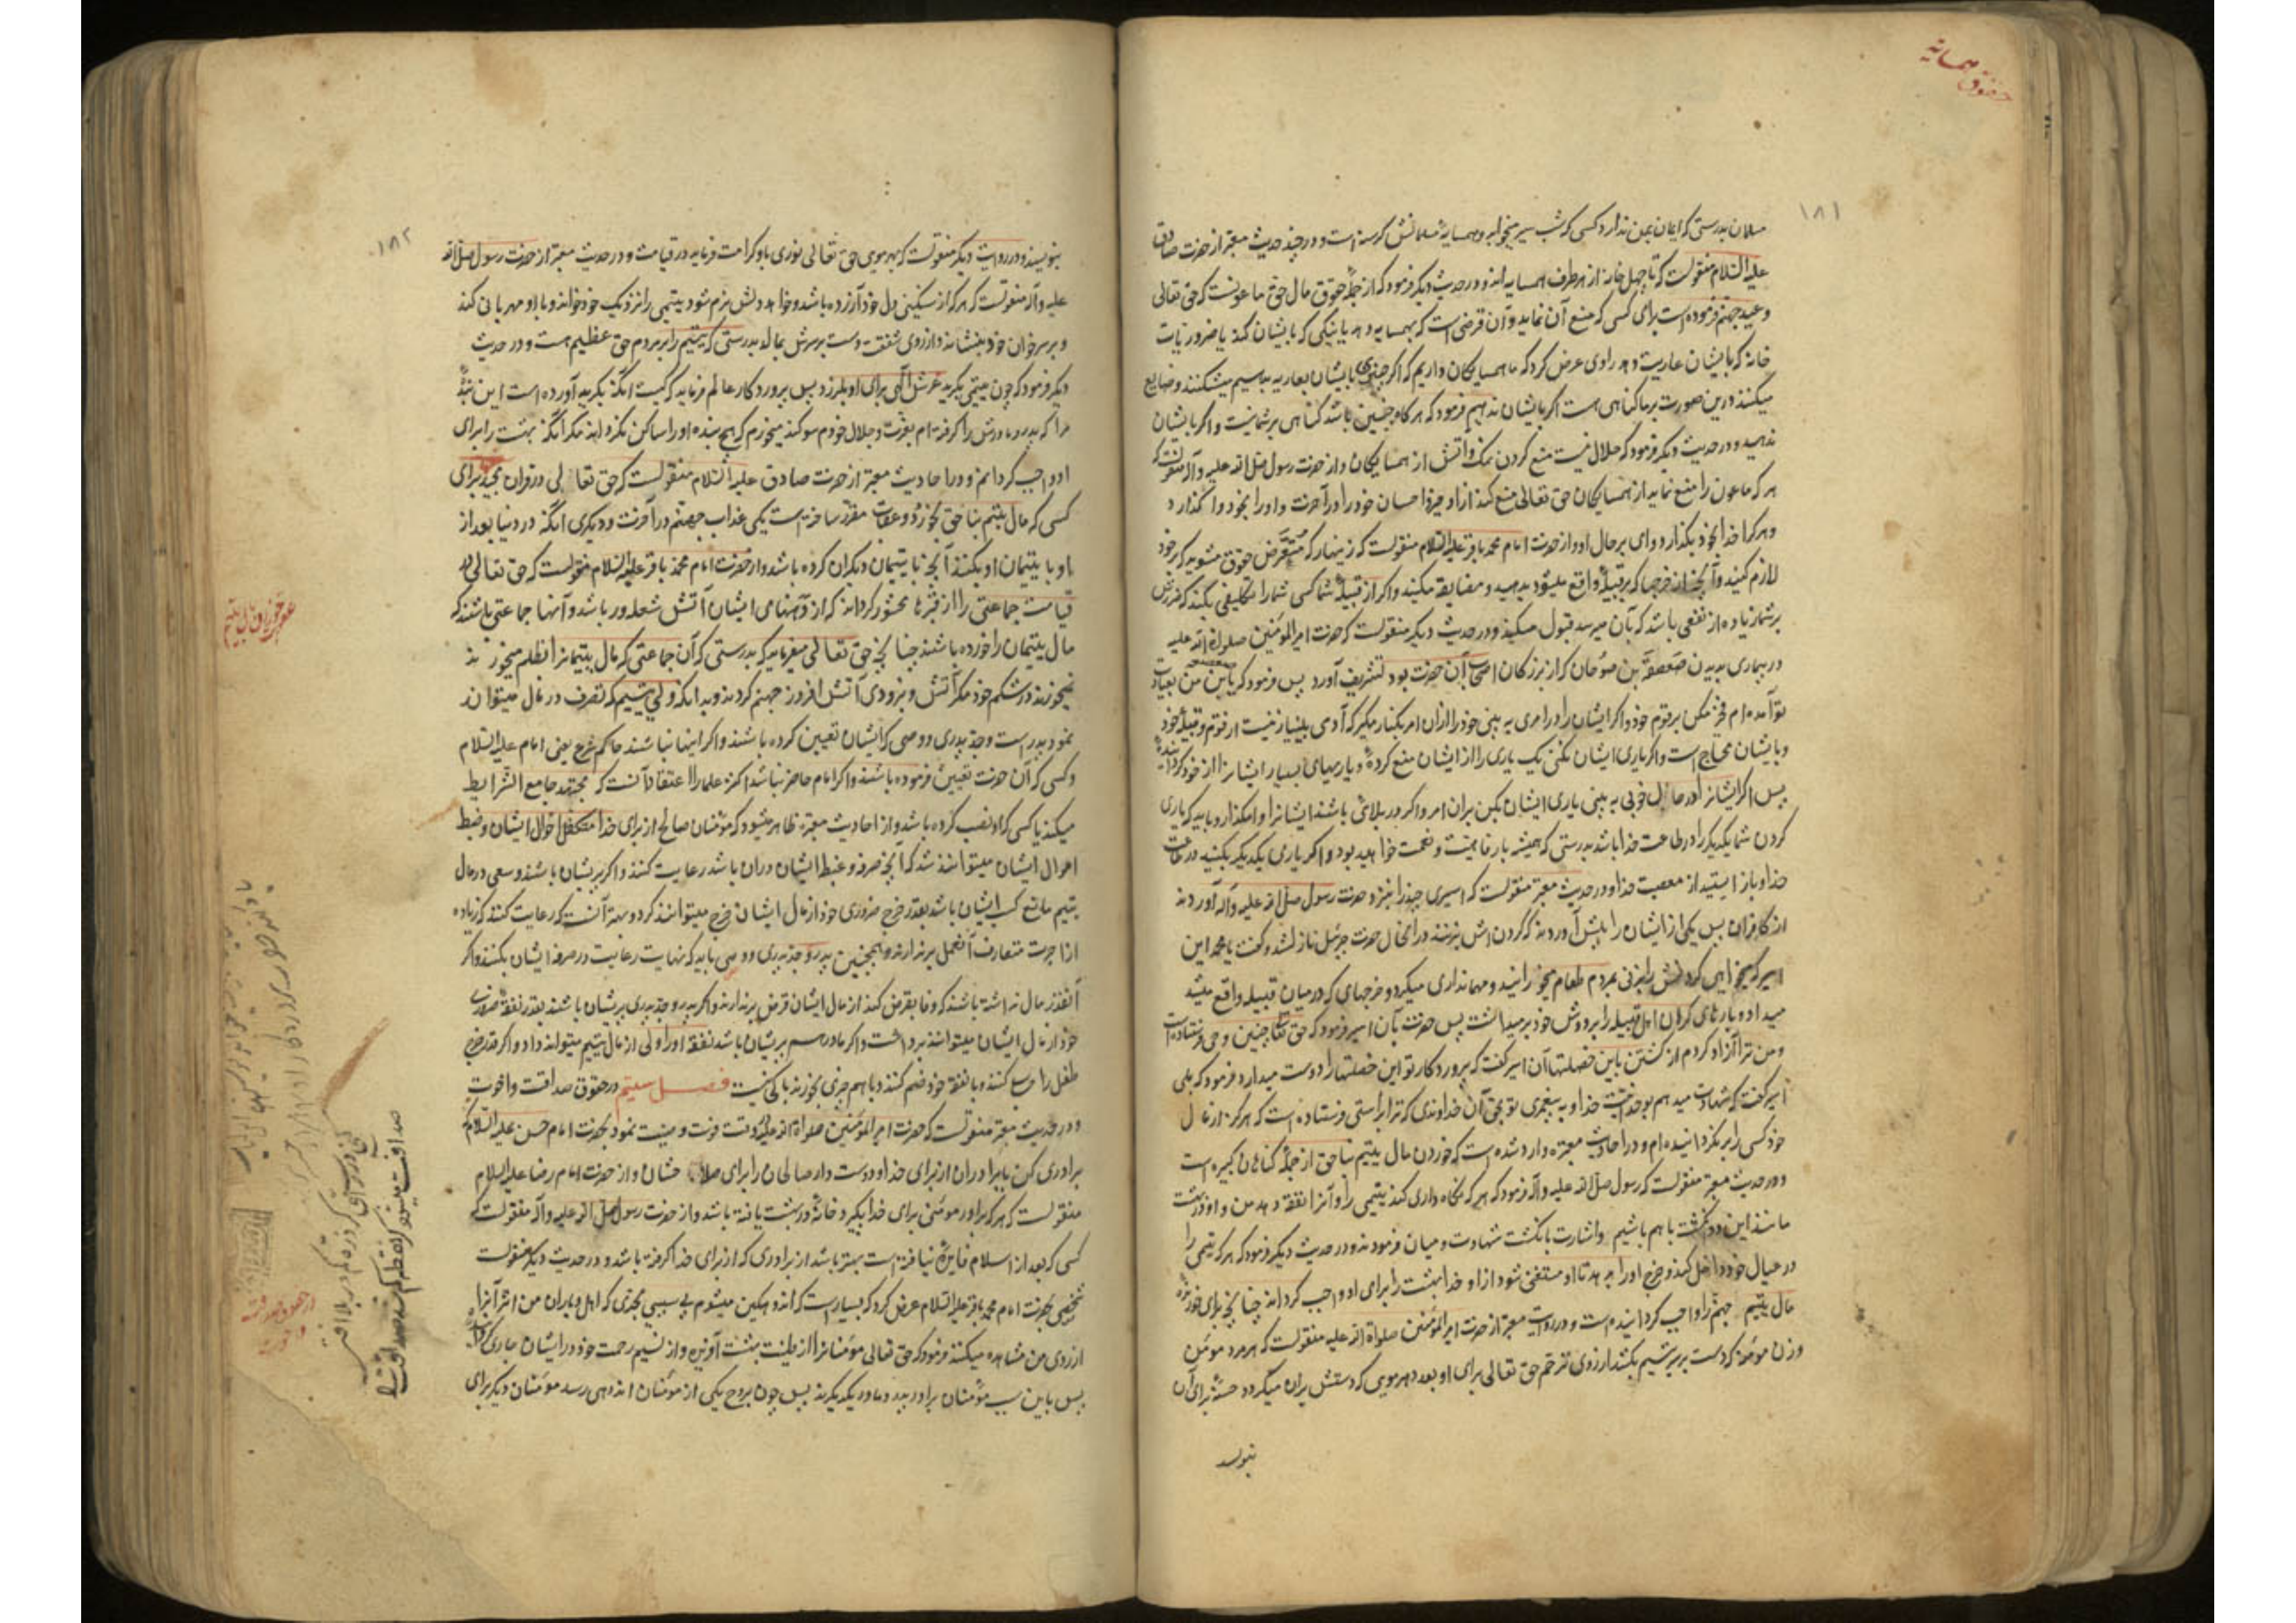 حقوق همسایه
۱۸۱
مسلمان بدرستی که ایمان بمن ندارد کسی که شب سیر بخوابد و همسایهٔ مسلمانش گرسنه است و در چند حدیث معتبر از حضرت صادق
علیه السلام منقولست که تا چهل خانه از هر طرف همسایه اند و در حدیث دیگر فرمود که از جملهٔ حقوق مال حق ماعونست که حق تعالی
وعید جهنم فرموده است برای کسی که منع آن نماید و آن قرضی است که بهمسایه دهد یا نیکی که بایشان کند یا ضروریات
خانه که بایشان عاریت دهد راوی عرض کرد که ما همسایکان داریم که اکر چیزی بایشان بعاریه بدهیم میشکنند و ضایع
میکنند درین صورت بر ما کناهی هست اکر بایشان ندهیم فرمود که هرکاه چنین باشند کناهی بر شما نیست و اکر بایشان
ندهید و در حدیث دیکر فرمود که حلال نیست منع کردن نمک و آتش از همسایکان و از حضرت رسول صلی الله علیه و آله منقولست که
هر که ماعون را منع نماید از همسایکان حق تعالی منع کند ازاو خیر و احسان خود را در آخرت و او را بخود واکذارد
و هرکرا خدا بخود بکذارد وای بر حال او و از حضرت امام محمد باقر علیه السلام منقولست که زینهار که متعرض حقوق مشوید که بر خود
لازم کنید و آنچه از خرجها که بر قبیله واقع میشود بدهید و مضایقه مکنید و اکر از قبیلهٔ شما کسی شما را تکلیفی بکند که ضررش
بر شما زیاده از نفعی باشد که بآن میرسد قبول مکنید و در حدیث دیکر منقولست که حضرت امیر المؤمنین صلوات الله علیه
در بیماری بدیدن صعصعة بن صوحان که از بزرکان اصحاب آن حضرت بود تشریف آورد پس فرمود که باین من بعیادت
تو آمده ام فخر مکن بر قوم خود و اکر ایشان را در امری به بینی خود را از ان امر بکنار مکیر که آدمی بی نیاز نیست از قوم و قبیلهٔ خود
و بایشان محتاج است و اکر یاری ایشان نکنی یک یاری را از ایشان منع کردهٔ و یاریهای بسیار ایشانرا از خود کردانیدهٔ
پس اکر ایشانرا در حال خوبی به بینی یاری ایشان بکن بران امر و اکر در بلائی باشند ایشانرا وامکذار و باید که یاری
کردن شما یکدیکر را در طاعت خدا باشد بدرستی که همیشه با رفاهیت و نعمت خواهید بود و اکر یاری یکدیکر بکنید در طاعت
خدا و باز ایستید از معصیت خدا و در حدیث معتبر منقولست که اسیری چند را بنزد حضرت رسول صلی الله علیه و آله آوردند
از کافران پس یکی از ایشان را پیش آوردند که کردنش بزنند در انحال حضرت جبرئیل نازل شد و کفت یا محمد این
اسیر که میخواهی کردنش را بزنی بمردم طعام میخورانید و مهمانداری میکرد و خرجهای که در میان قبیله واقع میشد
میداد و بارهای کران اهل قبیله را بر دوش خود برمیداشت پس حضرت بآن اسیر فرمود که حق تعالی چنین وحی فرستاده است
و من ترا آزاد کردم از کشتن باین خصلتها آن اسیر کفت که پروردکار تو این خصلتها را دوست میدارد فرمود که بلی
اسیر کفت که شهادت میدهم بوحدانیت خدا و به پیغمبری تو بحق آن خداوندی که ترا براستی فرستاده است که هرکز از مال
خود کسی را برنکردانیده ام و در احادیث معتبره وارد شده است که خوردن مال یتیم بناحق از جملهٔ کناهان کبیره است
و در حدیث معتبر منقولست که رسول صلی الله علیه و آله فرمود که هر که نکاه داری کند یتیمی را و آنرا نفقه دهد من و او در بهشت
مانند این دو انکشت با هم باشیم و اشارت بانکشت شهادت و میان فرمودند و در حدیث دیکر فرمود که هر که یتیمی را
در عیال خود داخل کند و خرج او را بدهد تا او مستغنی شود از او خدا بهشت را برای او واجب کرداند چنانچه برای خورندهٔ
مال یتیم جهنم را واجب کردانیده است و در روایت معتبر از حضرت امیر المؤمنین صلوات الله علیه منقولست که هر مرد مؤمن
و زن مؤمنه که دست بر سر یتیم بکشد از روی ترحم حق تعالی برای او بعدد هر مویی که دستش بران میکرود حسنهٔ برای آن
بنویسد
۱۸۲
بنویسند و در روایت دیکر منقولست که بهر مویی حق تعالی نوری باو کرامت فرماید در قیامت و در حدیث معتبر از حضرت رسول صلی الله
علیه و آله منقولست که هر که از سنکینی دل خود آزرده باشد و خواهد دلش نرم شود یتیمی را نزدیک خود خواند و با او مهربانی کند
و بر سر خوان خود بنشاند و از روی شفقت دست بر سرش بمالد بدرستی که یتیم را بر مردم حق عظیم هست و در حدیث
دیکر فرمود که چون یتیمی بکرید عرش الهی برای او بلرزد پس پروردکار عالم فرماید که کیست آنکه بکریه آورده است این بندهٔ
مرا که پدر و مادرش را کرفته ام بعزت و جلال خودم سوکند میخورم که هیچ بنده او را ساکن نکرداند مکر آنکه بهشت را برای
او واجب کردانم و در احادیث معتبر از حضرت صادق علیه السلام منقولست که حق تعالی در قران مجید برای
کسی که مال یتیم بناحق بخورد دو عقاب مقرر ساخته است یکی عذاب جهنم در آخرت و دیکری آنکه در دنیا بعد از
او با یتیمان او بکنند آنچه با یتیمان دیکران کرده باشد و از حضرت امام محمد باقر علیه السلام منقولست که حق تعالی در
قیامت جماعتی را از قبرها محشور کرداند که از دهنهای ایشان آتش شعله ور باشد و آنها جماعتی باشند که
مال یتیمان را خورده باشند چنانچه حق تعالی میفرماید که بدرستی که آن جماعتی که مال یتیمانرا بظلم میخورند
نمیخورند در شکم خود مکر آتش و بزودی آتش افروز جهنم کردند و بدانکه ولی یتیم که تصرف در مال میتواند
نمود پدر است و جد پدری و وصی که ایشان تعیین کرده باشند و اکر اینها نباشند حاکم شرع یعنی امام علیه السلام
و کسی که آن حضرت تعیین فرموده باشند و اکر امام حاضر نباشد اکثر علما را اعتقاد آنست که مجتهد جامع الشرایط
میکند یا کسی که او نصب کرده باشد و از احادیث معتبره ظاهر میشود که مؤمنان صالح از برای خدا متکفل احوال ایشان و ضبط
اموال ایشان میتوانند شد که آنچه صرفه و غبطه ایشان دران باشد رعایت کنند و اکر پریشان باشند و سعی در مال
یتیم مانع کسب ایشان باشد بقدر خرج ضروری خود از مال ایشان خرج میتوانند کرد و بهتر آنست که رعایت کنند که زیاده
از اجرت متعارف آن عمل برندارند و همچنین پدر و جد پدری و وصی باید که نهایت رعایت در صرفهٔ ایشان بکنند و اکر
آنقدر مال نداشته باشند که وفا بقرض کند از مال ایشان قرض برندارند و اکر پدر و جد پدری پریشان باشند بقدر نفقهٔ ضروری
خود از مال ایشان میتوانند برداشت و اکر مادر هم پریشان باشد نفقه او را ولی از مال یتیم میتواند داد و اکر قدر خرج
طفل را حساب کنند و با نفقه خود ضم کنند و با هم چیزی بخورند باکی نیست فصل سیم در حقوق صداقت و اخوت
و در حدیث معتبر منقولست که حضرت امیر المؤمنین صلوات الله علیه در وقت فوت وصیت نمود بحضرت امام حسن علیه السلام که
برادری کن با برادران از برای خدا و دوست دار صالحان را برای صلاح ایشان و از حضرت امام رضا علیه السلام
منقولست که هر که برادر مؤمنی برای خدا بکیرد خانهٔ در بهشت یافته باشد و از حضرت رسول صلی الله علیه و آله منقولست که
کسی که بعد از اسلام فایدهٔ نیافته است بهتر باشد از برادری که از برای خدا کرفته باشد و در حدیث دیکر منقولست
شخصی بحضرت امام محمد باقر علیه السلام عرض کرد که بسیار است که اندوهکین میشوم بی سببی بحدی که اهل و یاران من اثر آنرا
از روی من مشاهده میکنند فرمود که حق تعالی مؤمنانرا از طینت بهشت آفریده و از نسیم رحمت خود در ایشان جاری کرده
پس باین سبب مؤمنان برادر پدر و مادر یکدیکرند پس چون بروح یکی از مؤمنان اندوهی رسد مؤمنان دیکر برای